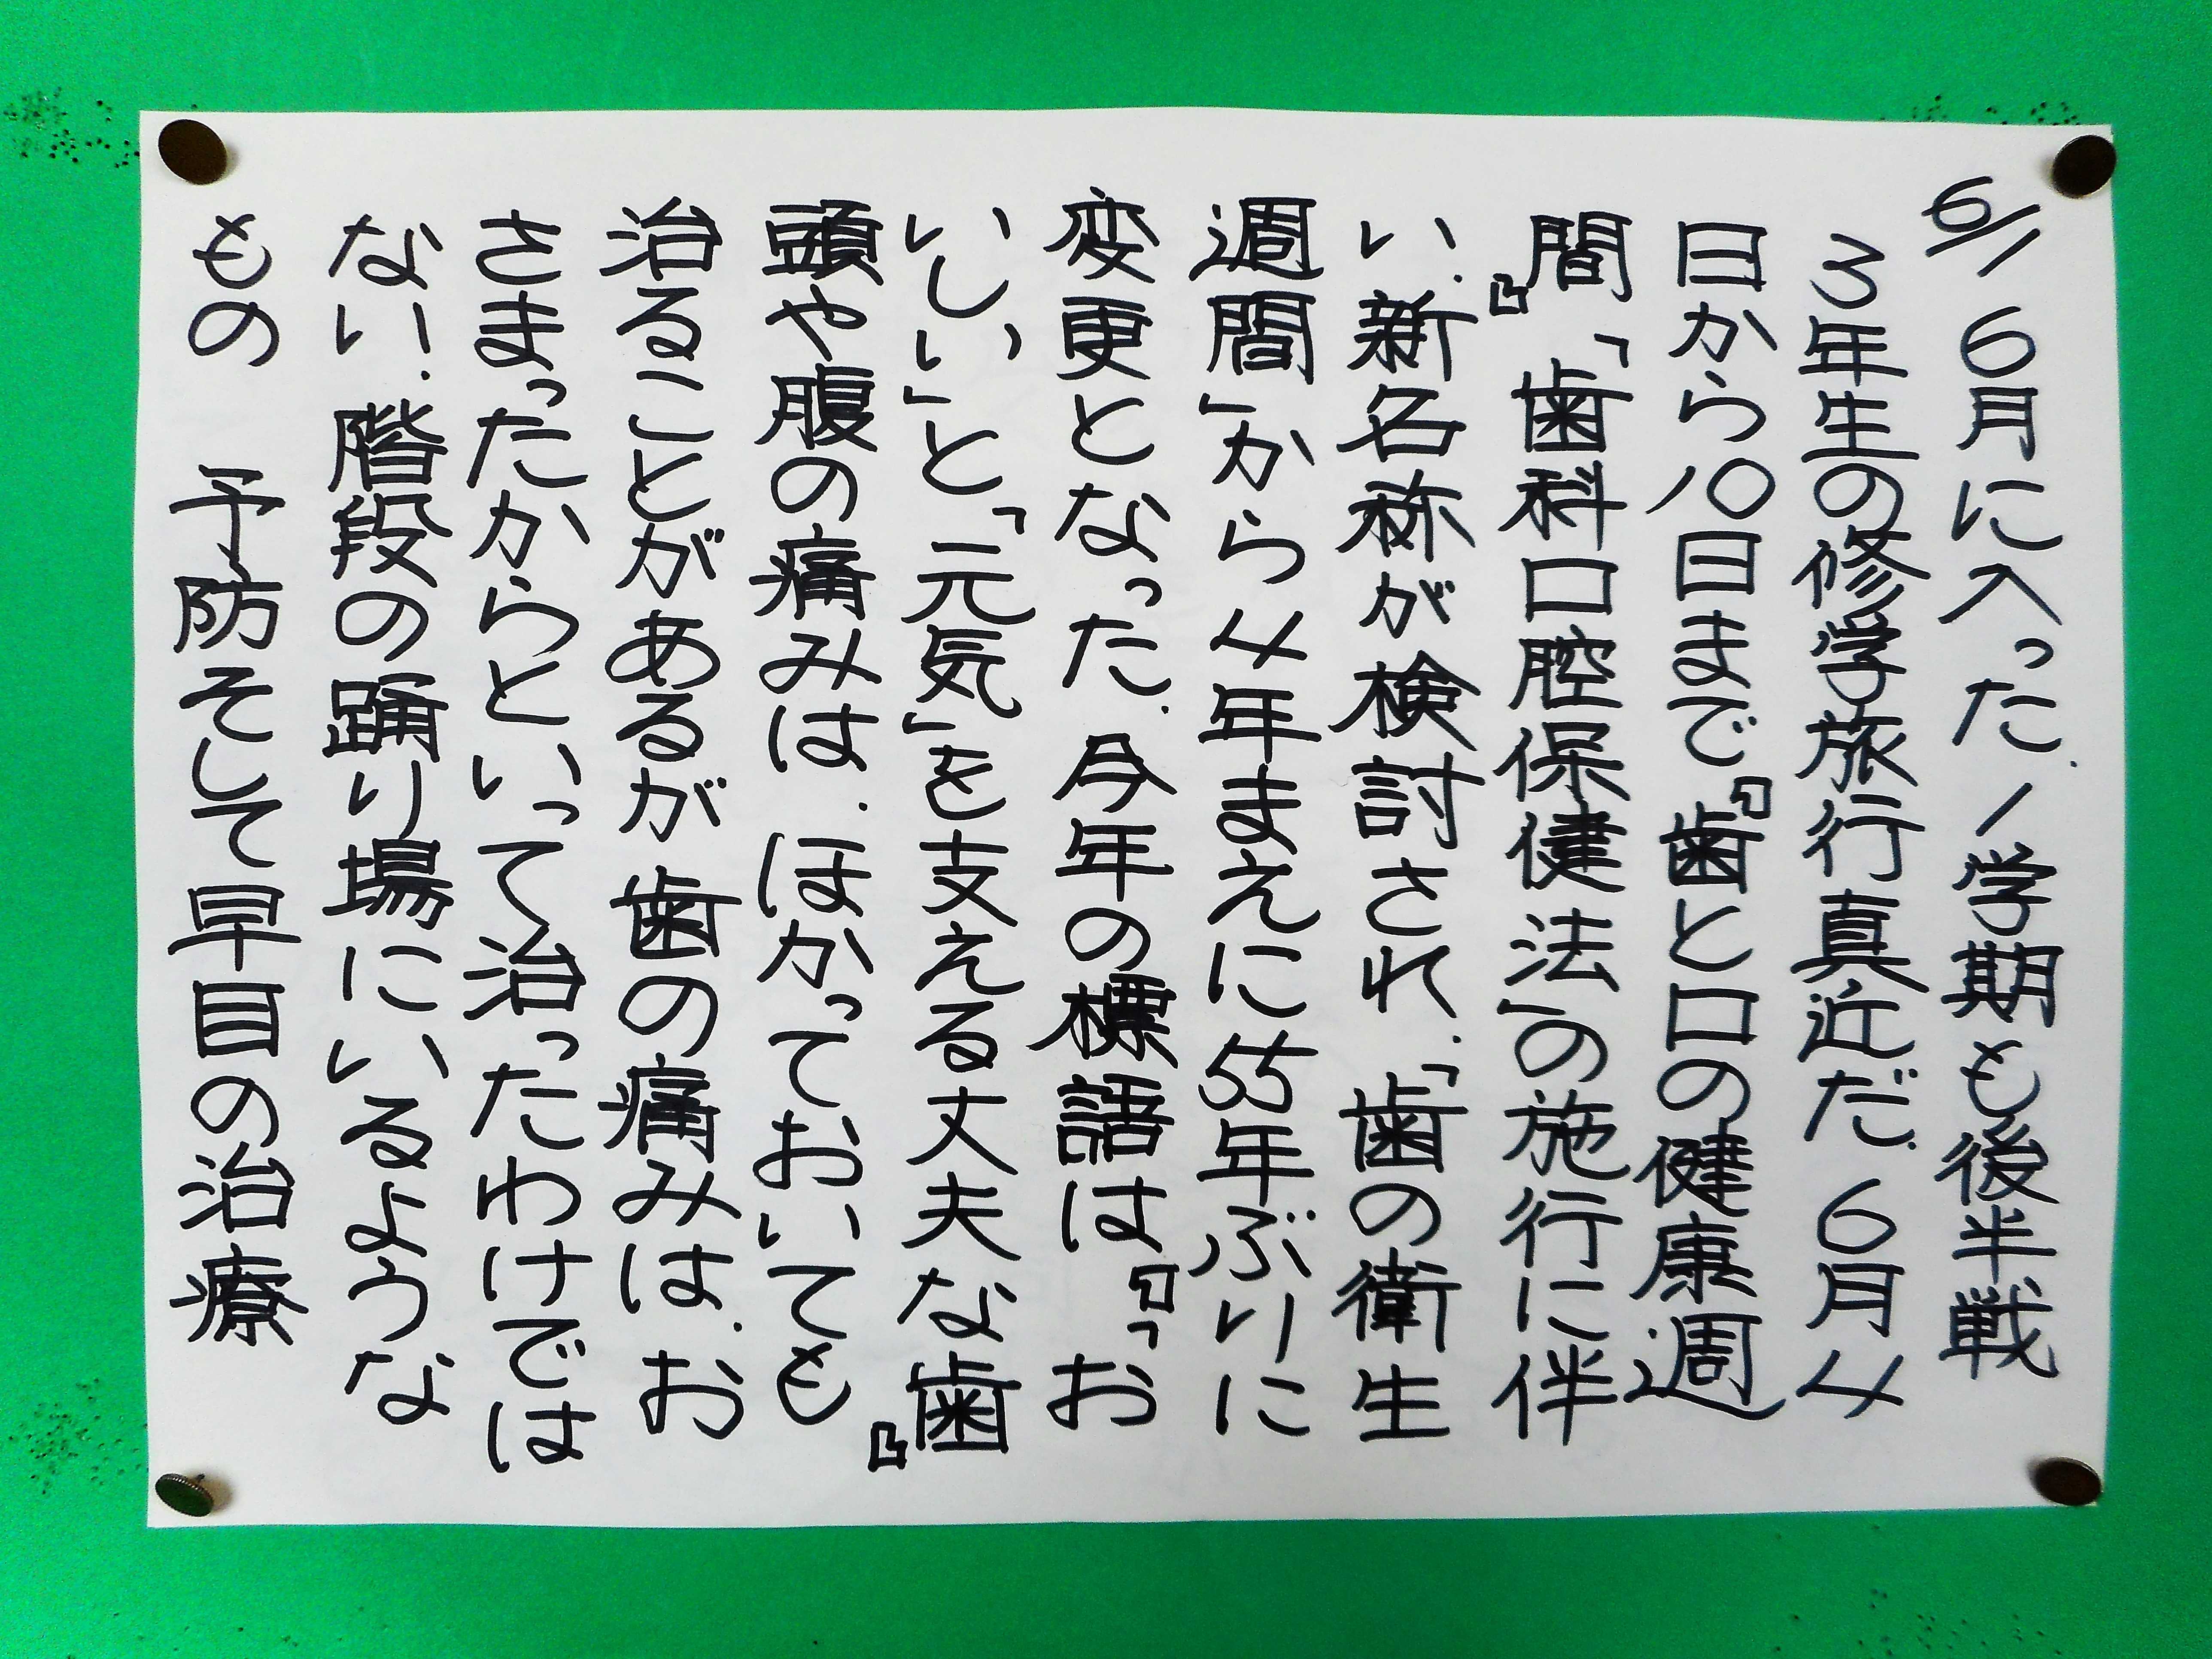 6/1 6月に入った.1学期も後半戦
3年生の修学旅行真近だ.6月4
日から10日まで『歯と口の健康週
間』「歯科口腔保健法」の施行に伴
い.新名称が検討され.「歯の衛生
週間」から4年まえに55年ぶりに
変更となった.今年の標語は『「お
いしい」と「元気」を支える丈夫な歯』
頭や腹の痛みは.ほかっておいても
治ることがあるが歯の痛みは.お
さまったからといって治ったわけでは
ない.階段の踊り場にいるような
もの 予防そして早目の治療